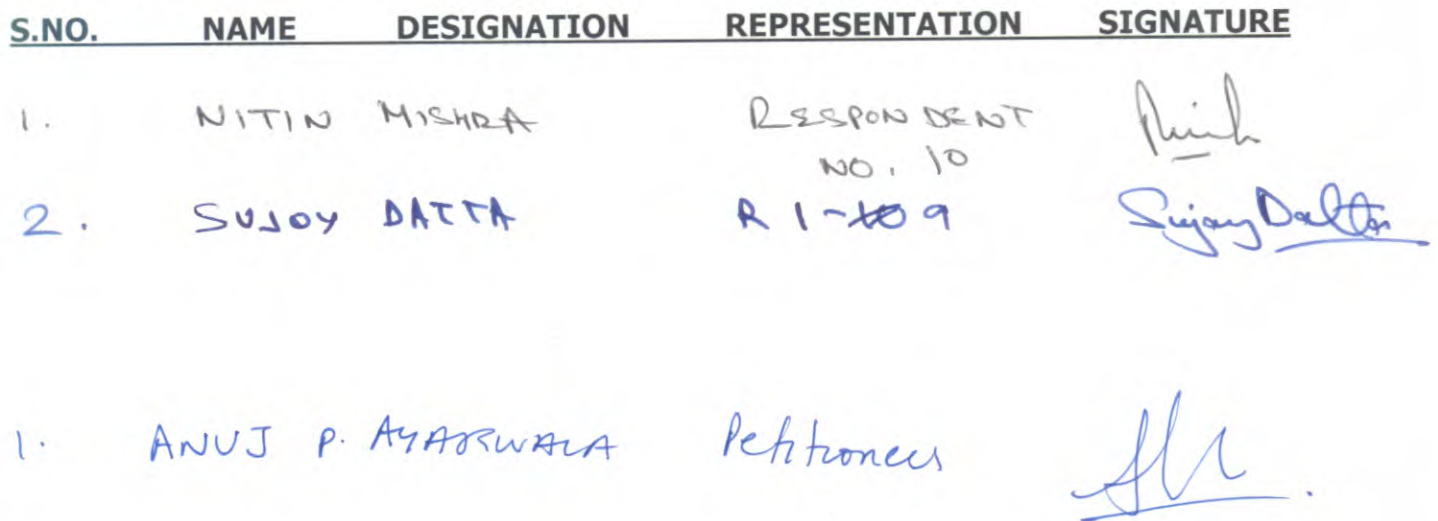 S.NO. NAME DESIGNATION REPRESENTATION SIGNATURE
1. NITIN MISHRA RESPONDENT
NO. 10
2. SUJOY DATTA R 1-9 Sujoy Datta
1. ANUJ P. AGARWALA Petitioners